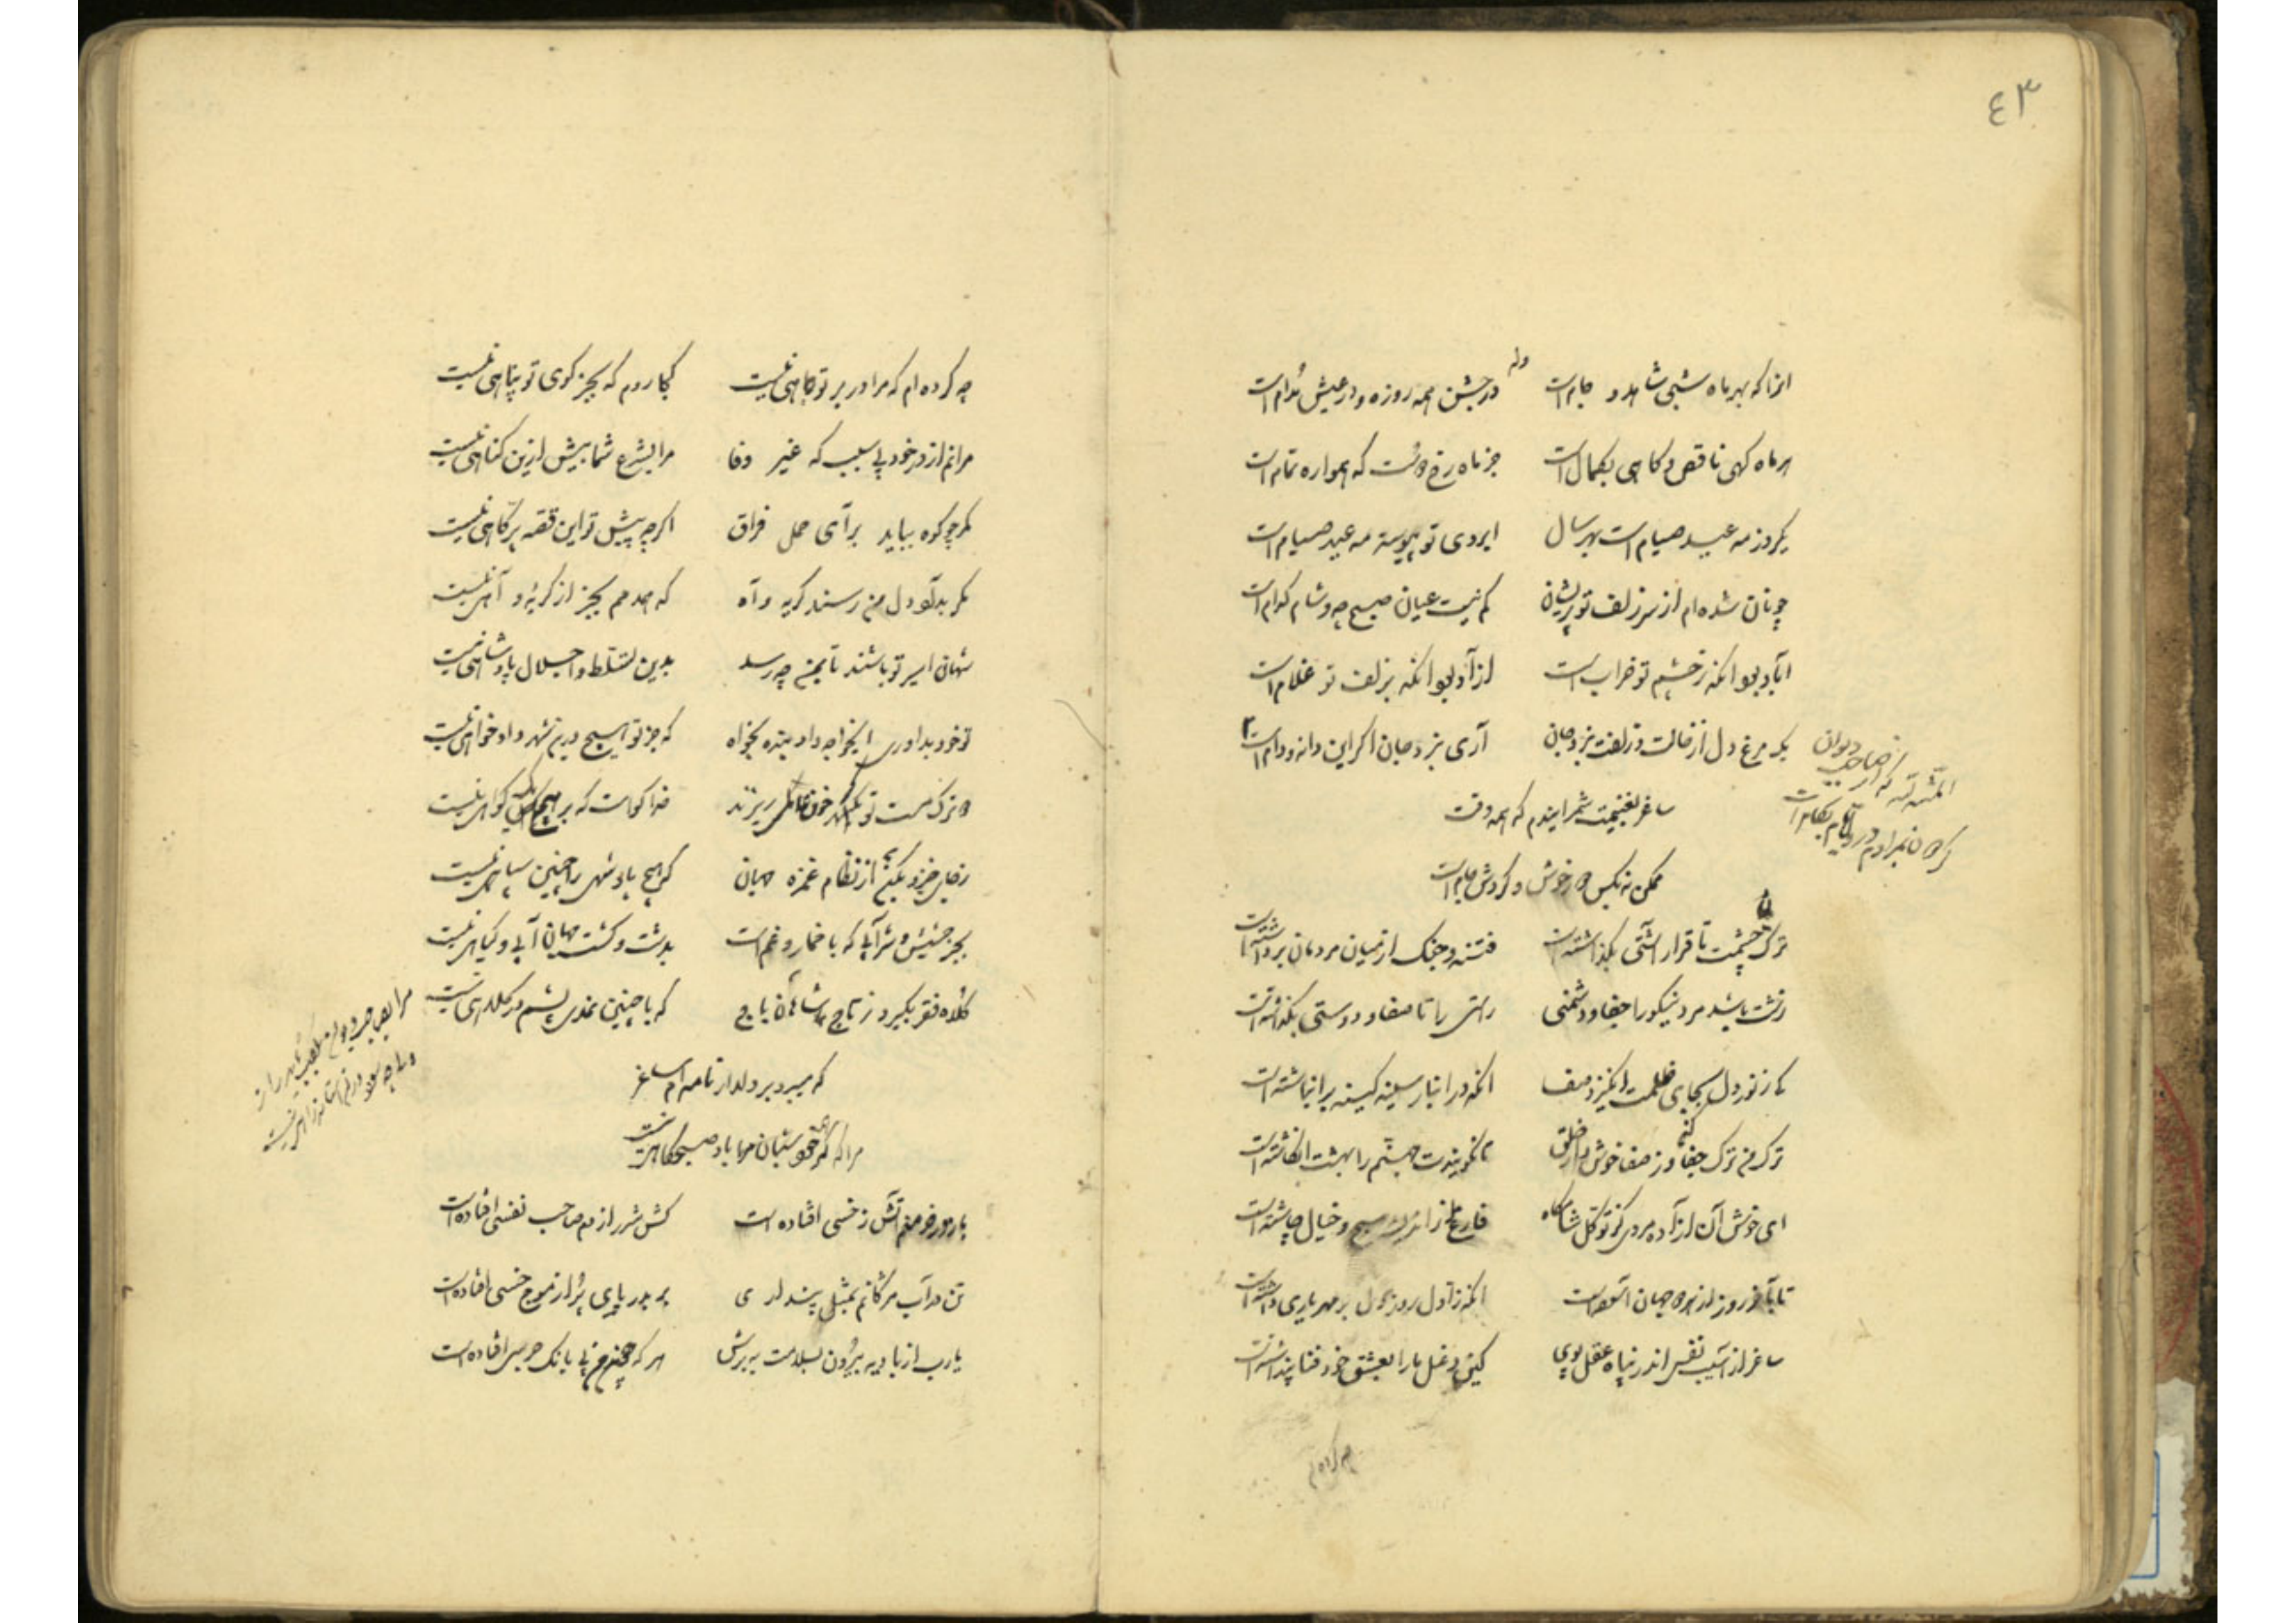 ٤٣
وله
انرا که بهر ماه شبی شاهد و جام است در جشن همه روزه و در عیش مدام است
هر ماه گهی ناقص و گاهی بکمال است جز ماه رخ دوست که همواره تمام است
یکروز مه عید صیام است بهر سال ابروی تو پیوسته مه عید صیام است
چونان شده‌ام از سر زلف تو پریشان کم نیست عیان صبح چه و شام کدام است
آباد بود انکه ز چشم تو خراب است آزاد بود انکه بزلف تو غلام است
یک مرغ دل از خالت و زلفت نبرد جان آری نبرد جان اگر این دانه و دام است
المنة لله که از صاحب دیوان
ساغر بغنیمت شمر ایندم که همه وقت
ممکن نه بکس خوش و گردش جام است
ترک چشمت تا قرار آشتی بگذاشته است فتنه و جنگ از میان مردمان برداشته است
زشت باشد مرد نیکو را جفا و دشمنی راستی را تا صفا و دوستی بگذاشته است
کز نور دل بجای ظلمت انگیزد صف انکه در انبار سینه کینه بر انباشته است
ترک من ترک جفا کن وز صفا خوش دار خلق تا نگویندت جهنم را بهشت انگاشته است
ای خوش آن آزاده مردی کز توکل شامگاه فارغ از اندیشه صبح و خیال چاشته است
تا بآخر روز از جهان آسوده است انکه ز اول روز دل بر مهر یاری داشته است
ساغر از آسیب نفس اندر پناه عقل پوی کین دغل ما را بعشق خود فنا پنداشته است
چه کرده‌ام که مرا در بر تو جاهی نیست کجا روم که بجز کوی تو پناهی نیست
مرانم از در خود بی سبب که غیر وفا مرا بشرع شما بیش ازین گناهی نیست
مگر چو کوه بباید برای حمل فراق اگر چه پیش تو این قصه پر کاهی نیست
مگر بداد دل من رسند گریه و آه که همدمم بجز از گریه و آهی نیست
شهان اسیر تو باشند تا بمن چه رسد بدین تسلط و اجلال پادشاهی نیست
تو خود بداوری ایخواجه داد بنده بخواه که جز تو هیچ درین شهر دادخواهی نیست
دو ترک مست تو خون ریزند خدا گواست که بر هیچیک گواهی نیست
ز جای خیزد از نظام غمزه جهان که هیچ پادشهی را چنین سپاهی نیست
بجز حشیش و شرابی که با خمار و غم است بدشت و کشت جهان آبی و گیاهی نیست
کلاه فقر بگیرد ز تاج شاهان باج که با چنین نمدی پشم در کلاهی نیست
که میبرد بر دلدار نامه‌ام ساغر
مرا که محرم شبان باد صبحگاهی نیست
باز در خرمنم آتش ز خسی افتاده است کش شرر از دم صاحب نفسی افتاده است
تن در آب مژگانم بمثل پنداری بر بدریای پر از موج خسی افتاده است
یارب از بادیه بیرون بسلامت ببرش هر که همچون من پی بانک جرسی افتاده است